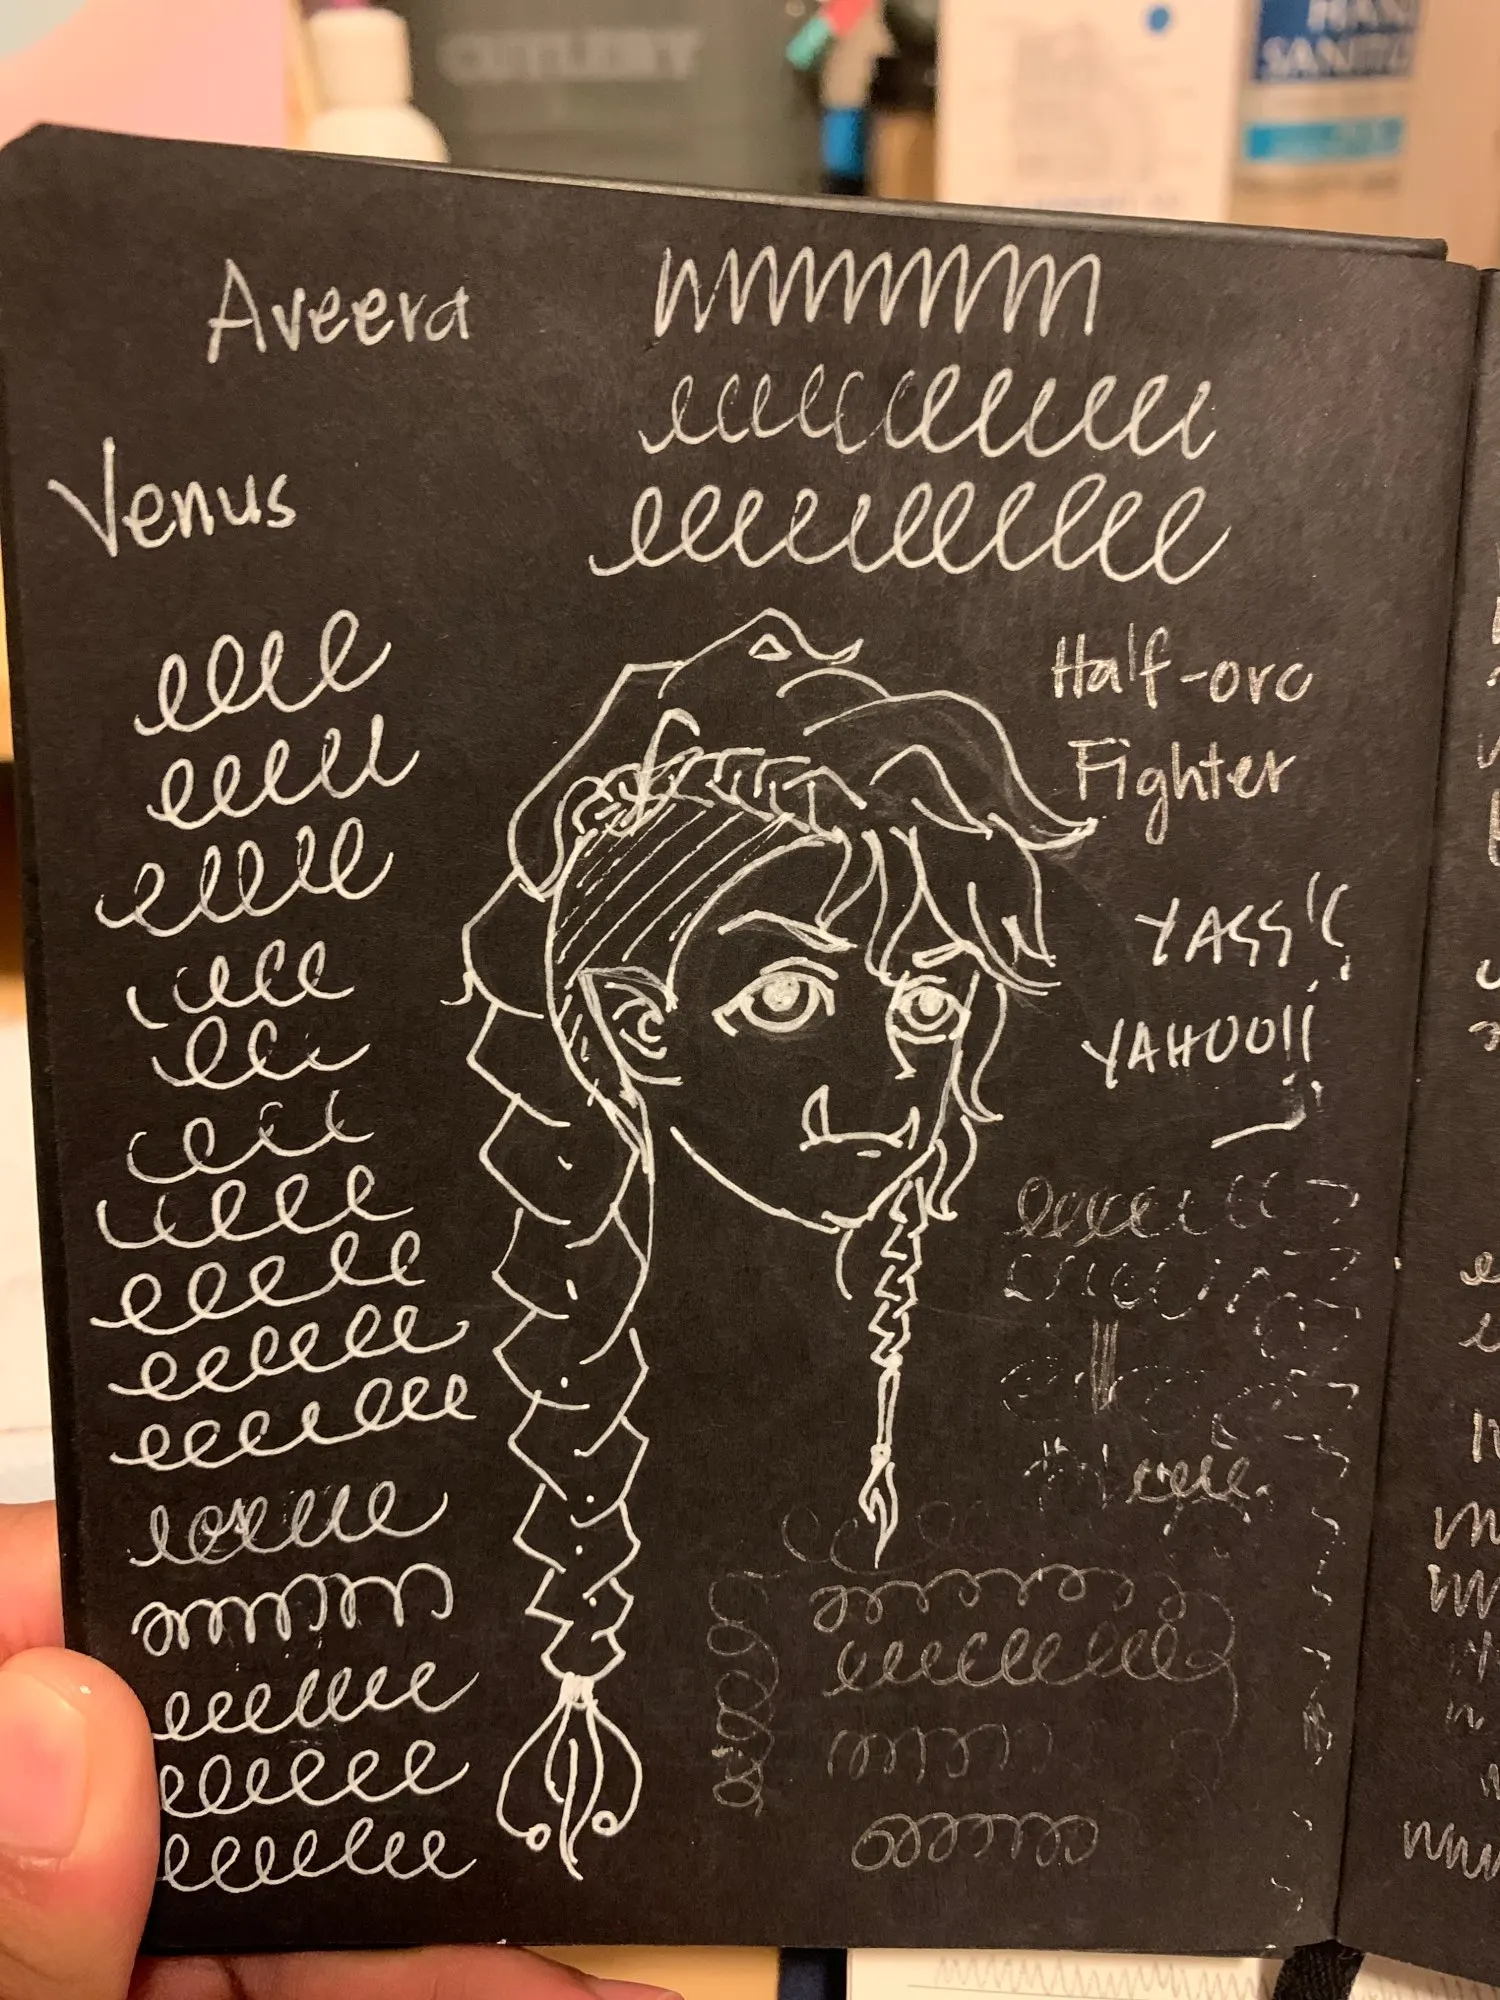 CUTLERY
HAN
SANITI
Aveera
Venus
Half-orc
Fighter
YASS!!
YAHOO!!